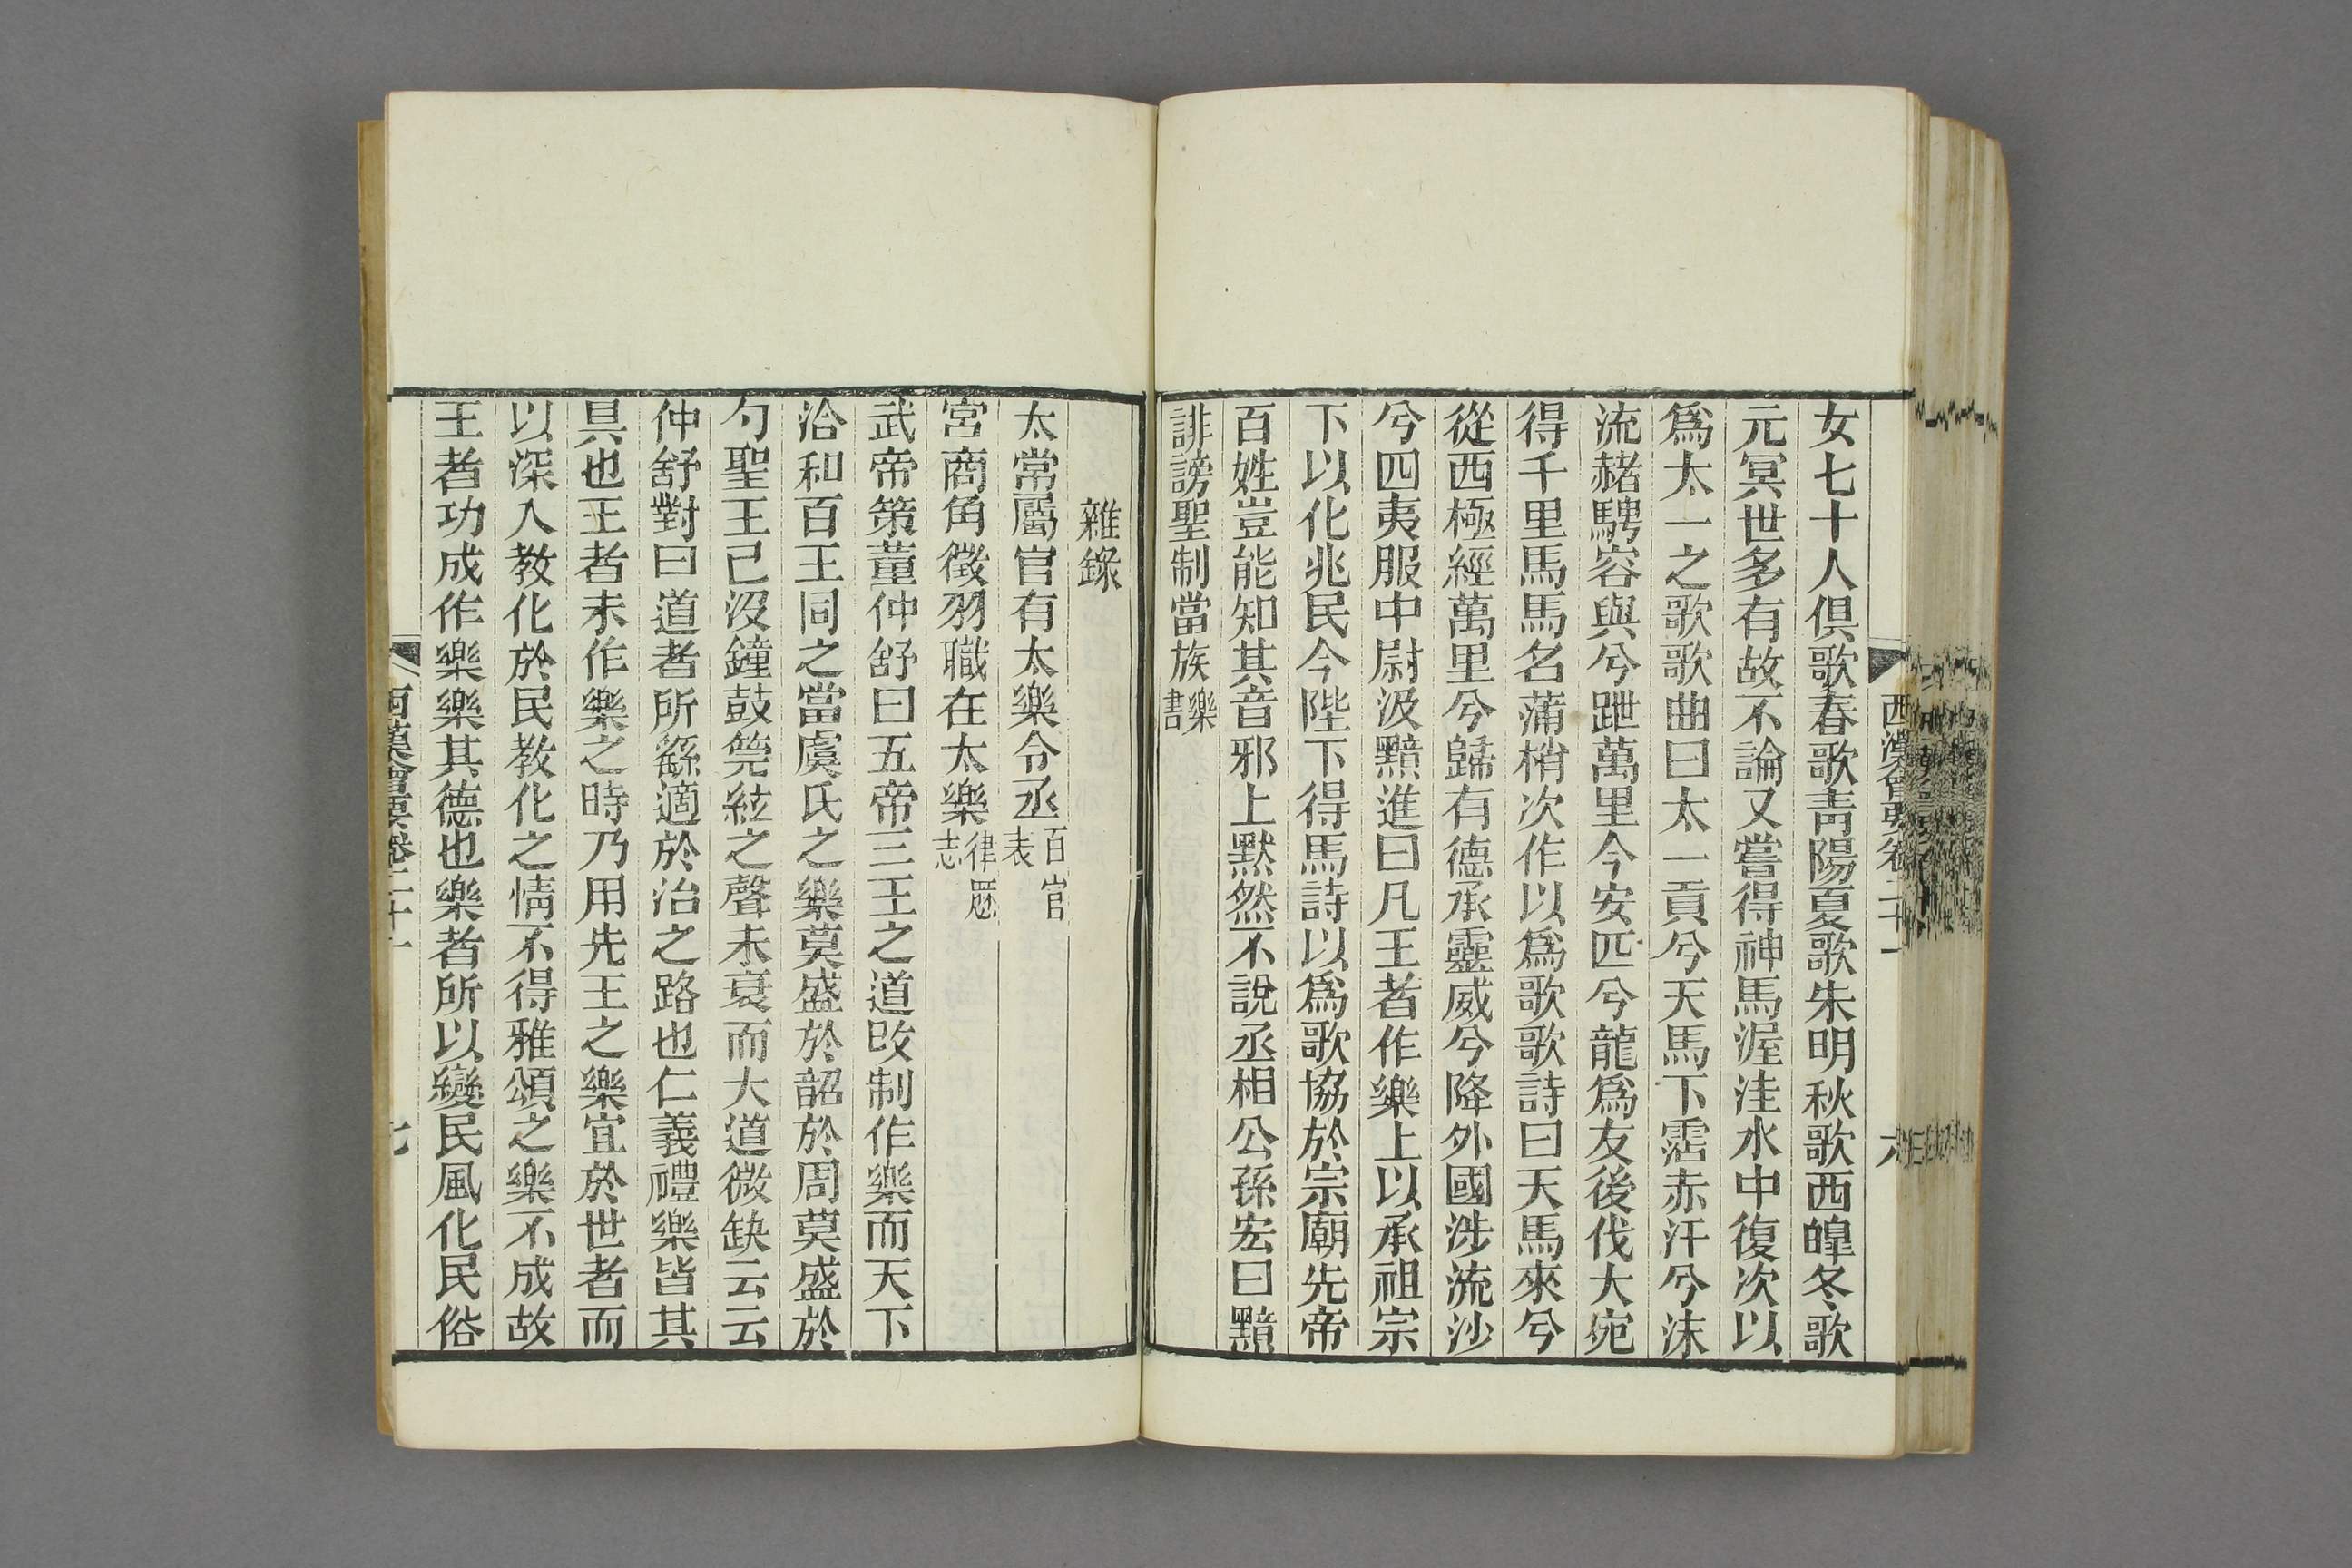 西漢會要卷二十一
六
女七十人俱歌春歌靑陽夏歌朱明秋歌西皥冬歌
元冥世多有故不論又嘗得神馬渥洼水中復次以
爲太一之歌歌曲曰太一貢兮天馬下霑赤汗兮沫
流赭騁容與兮跇萬里今安匹兮龍爲友後伐大宛
得千里馬馬名蒲梢次作以爲歌歌詩曰天馬來兮
從西極經萬里兮歸有德承靈威兮降外國涉流沙
兮四夷服中尉汲黯進曰凡王者作樂上以承祖宗
下以化兆民今陛下得馬詩以爲歌協於宗廟先帝
百姓豈能知其音邪上默然不說丞相公孫宏曰黯
誹謗聖制當族樂書
雜錄
太常屬官有太樂令丞百官表
宮商角徵羽職在太樂律厯志
武帝策董仲舒曰五帝三王之道改制作樂而天下
洽和百王同之當虞氏之樂莫盛於韶於周莫盛於
勺聖王已沒鐘鼓筦絃之聲未衰而大道微缺云云
仲舒對曰道者所繇適於治之路也仁義禮樂皆其
具也王者未作樂之時乃用先王之樂宜於世者而
以深入教化於民教化之情不得雅頌之樂不成故
王者功成作樂樂其德也樂者所以變民風化民俗
西漢會要卷二十一
七